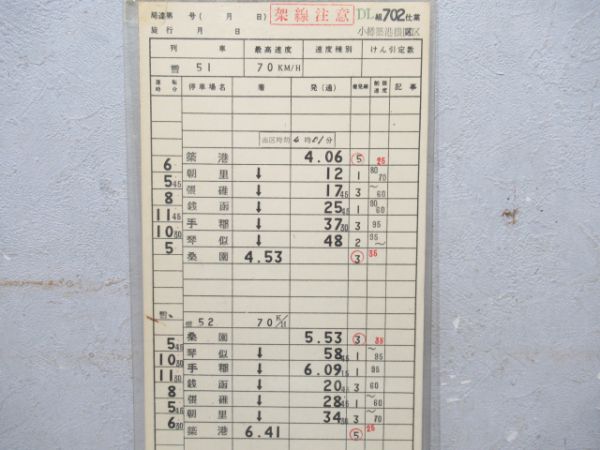 局達第 号( 月 日) 架線注意 DL組702仕業
施行 月 日 小樽築港機関区
列 車 最高速度 速度種別 けん引定数
雪 51 70 KM/H
運転時分 停車場名 着 発(通) 着発線 制限速度 記事
出区時刻 4時01分
築港 4.06 5 25
6 朝里 ↓ 12 1 80 70
5 45 張碓 ↓ 17 45 3 〜60
8 銭函 ↓ 25 45 1 80 60
11 45 手稲 ↓ 37 30 3 95
10 30 琴似 ↓ 48 2 95〜
5 桑園 4.53 3 35
雪 52 70 K/H
桑園 5.53 3 35
5 45 琴似 ↓ 58 45 1 〜95
10 30 手稲 ↓ 6.09 15 1 95
11 30 銭函 ↓ 20 45 3 60
8 張碓 ↓ 28 45 1 〜60
5 45 朝里 ↓ 34 30 3 〜70
6 30 築港 6.41 5 25